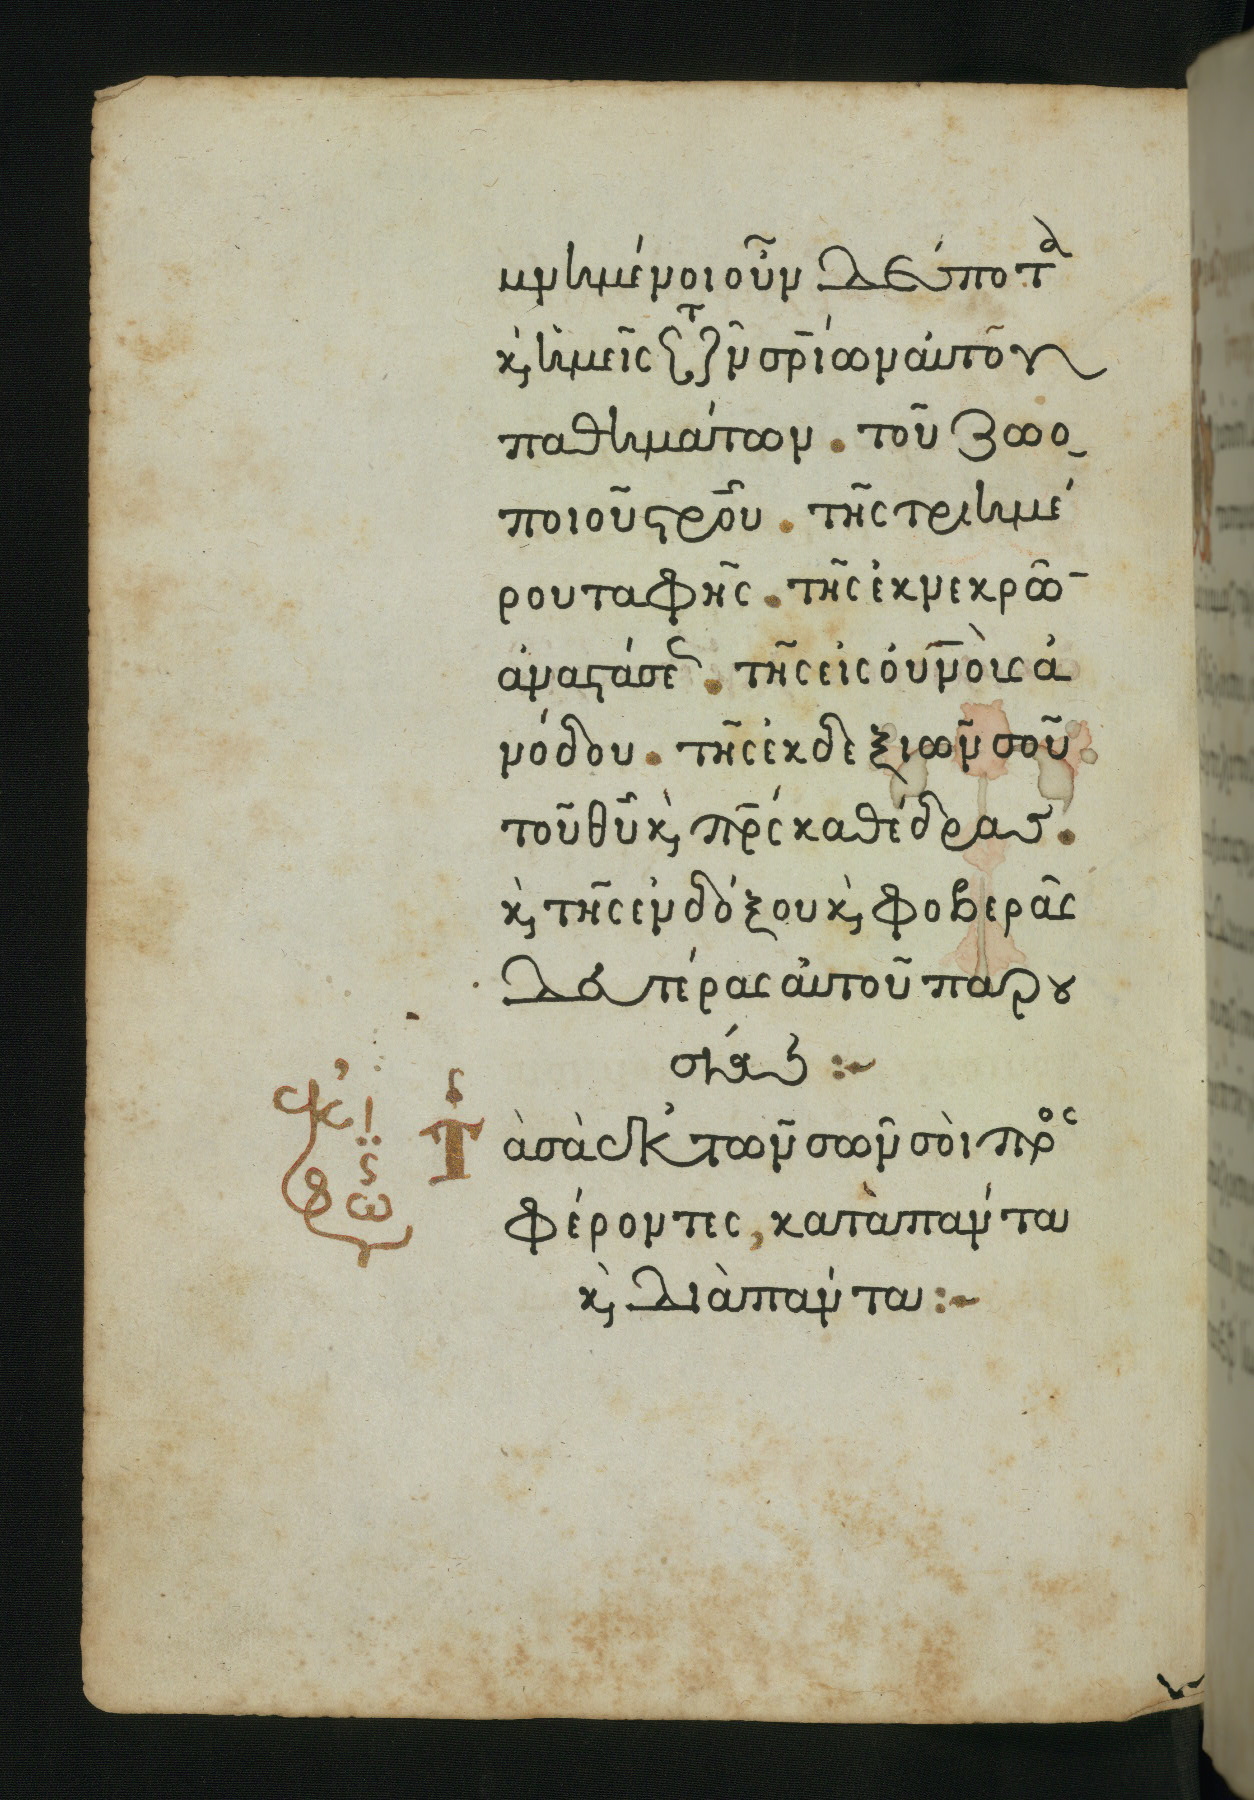 μνημένοι οὖν δέσποτα
κ, ἡμεῖς τῶν σρίων αὐτοῦ
παθημάτων . τοῦ ζωο-
ποιοῦ σροῦ . τῆς τριημέ
ρου ταφῆς . τῆς ἐκ νεκρῶ
ἀναστάσεως . τῆς εἰς οὐνοὺς ἀ
νόδου . τῆς ἐκ δεξιῶν σοῦ
τοῦ θῦ κ, πρς καθέδρας .
κ, τῆς ἐνδόξου κ, φοβερᾶς
δευτέρας αὐτοῦ παρου
σίας :~
Τὰ σὰ ἐκ τῶν σῶν σοὶ προς
φέροντες, κατὰ πάντα
κ, διὰ πάντα :~